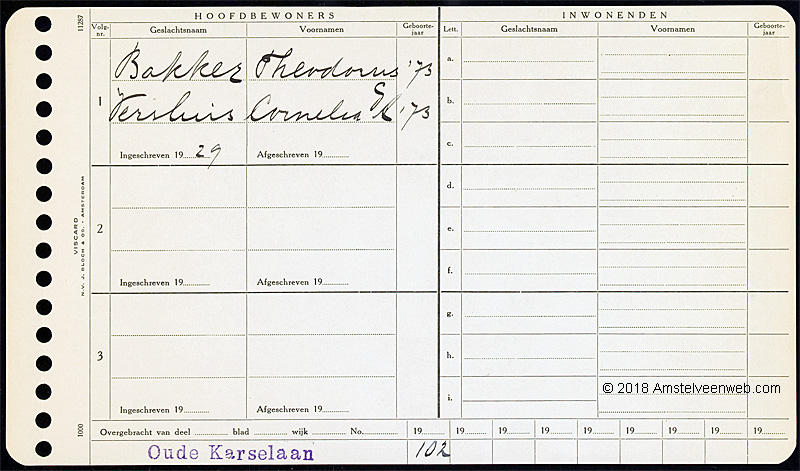 HOOFDBEWONERS
INWONENDEN
11287
Volg-nr.
Geslachtsnaam
Voornamen
Geboorte-jaar
Lett.
Geslachtsnaam
Voornamen
Geboorte-jaar
1
Bakker Theodorus '73
Versluis Cornelia G '73
Ingeschreven 19 29
Afgeschreven 19
2
Ingeschreven 19
Afgeschreven 19
3
Ingeschreven 19
Afgeschreven 19
a.
b.
c.
d.
e.
f.
g.
h.
i.
VISCARD
N.V. J. BLOCH & CO. - AMSTERDAM
1000
© 2018 Amstelveenweb.com
Overgebracht van deel blad wijk No. 19 19 19 19 19 19 19 19 19
Oude Karselaan 102